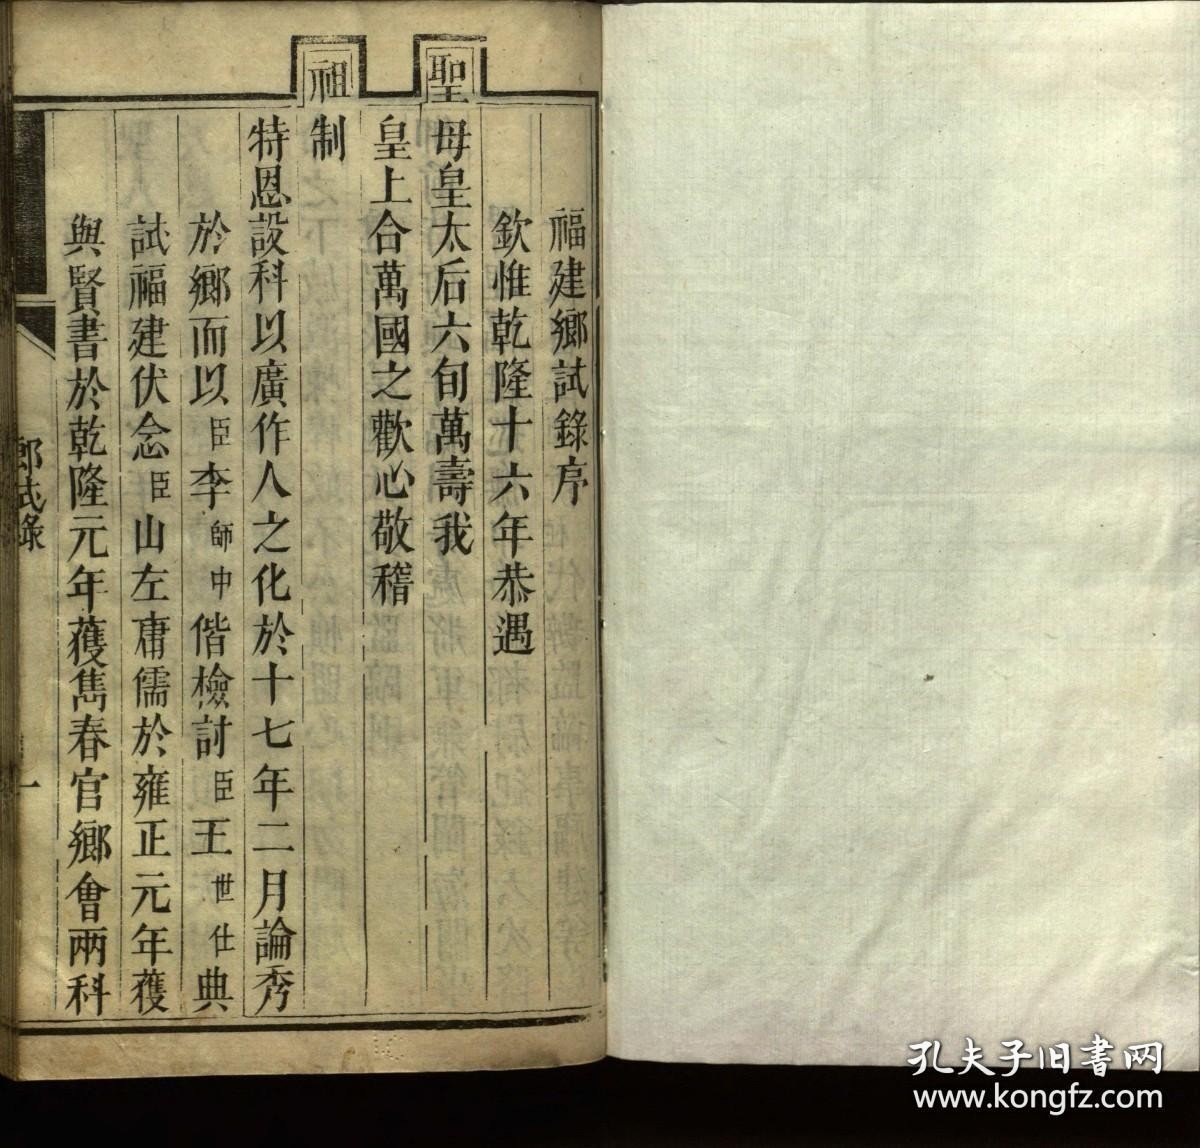 福建鄉試錄序
欽惟乾隆十六年恭遇
聖母皇太后六旬萬壽我
皇上合萬國之歡心敬稽
祖制
特恩設科以廣作人之化於十七年二月論秀
於鄉而以臣李師中偕檢討臣王世仕典
試福建伏念臣山左庸儒於雍正元年獲
與賢書於乾隆元年獲雋春官鄉會兩科
鄉試錄
一
孔夫子旧书网
www.kongfz.com